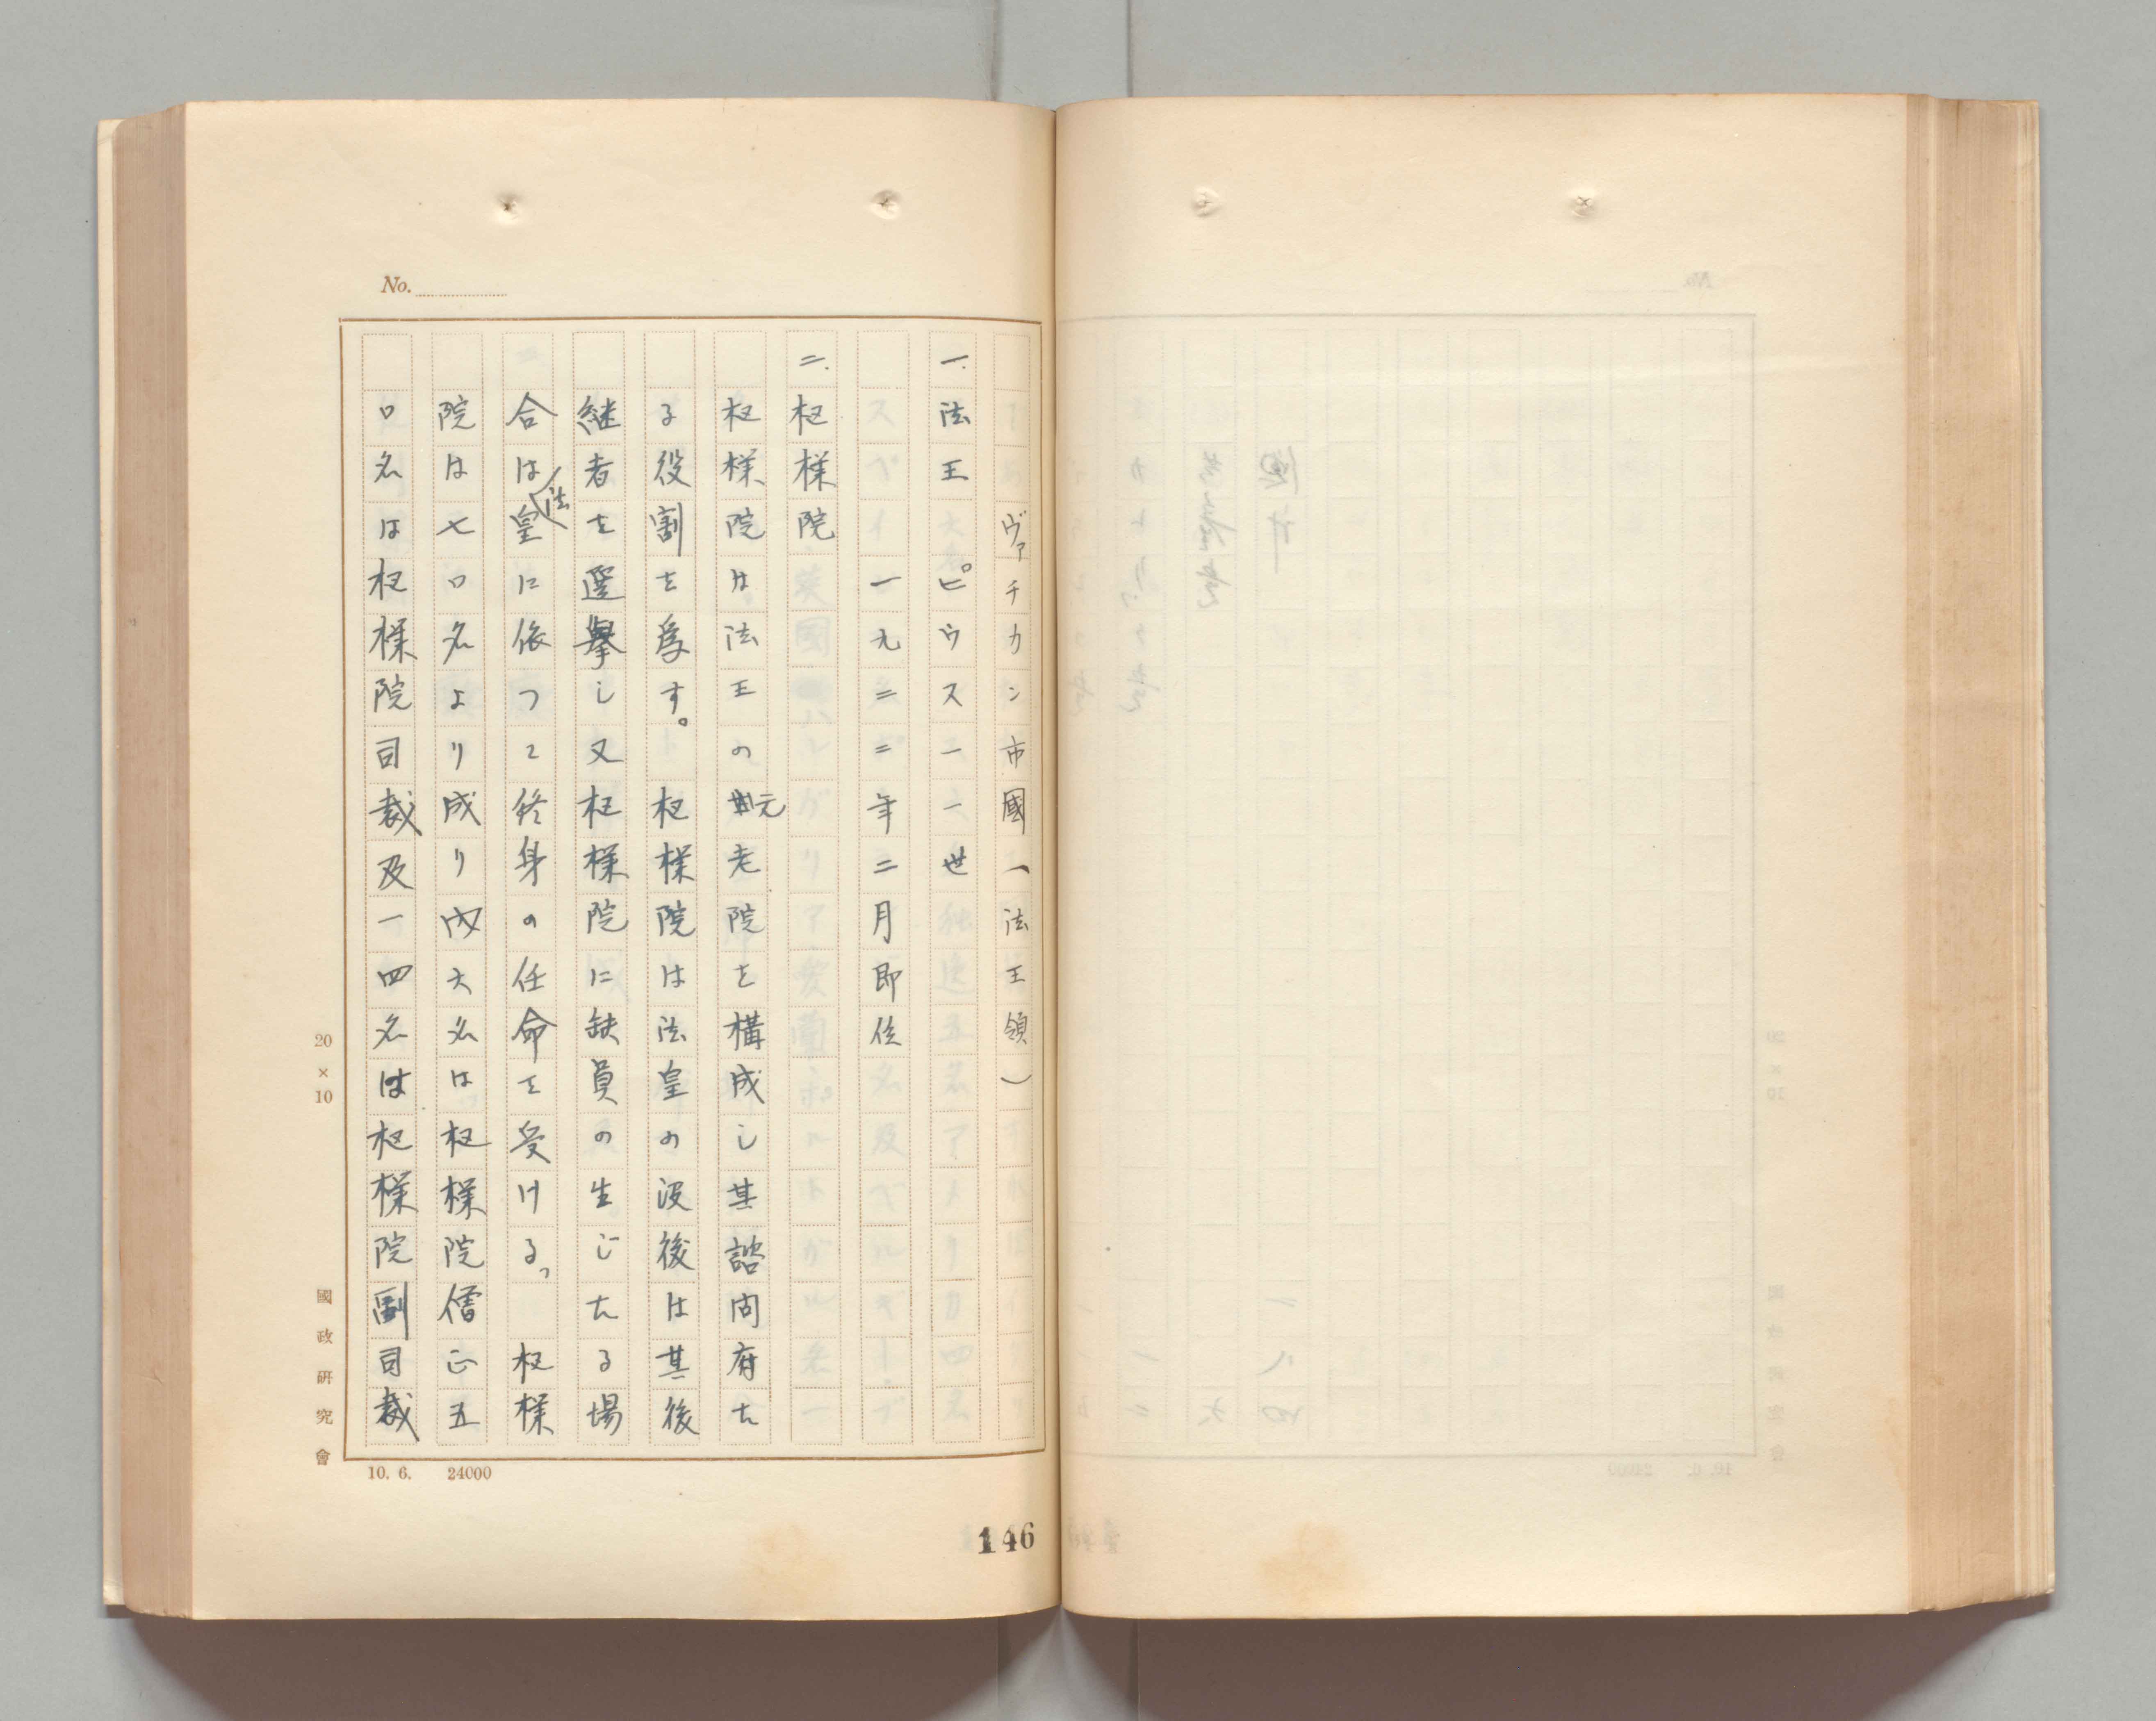 No.
ヴァチカン市國(法王領)
一.法王 ピウス一一世
一九二二年二月即位
二.枢機院
枢機院は法王の元老院を構成し其諮問府た
る役割を為す。 枢機院は法皇の没後は其後
継者を選挙し又枢機院に缺員の生じたる場
合は法皇に依つて終身の任命を受ける。 枢機
院は七〇名より成り内六名は枢機院僧正五
〇名は枢機院司裁及一四名は枢機院副司裁
20×10
國政研究會
10. 6. 24000
146